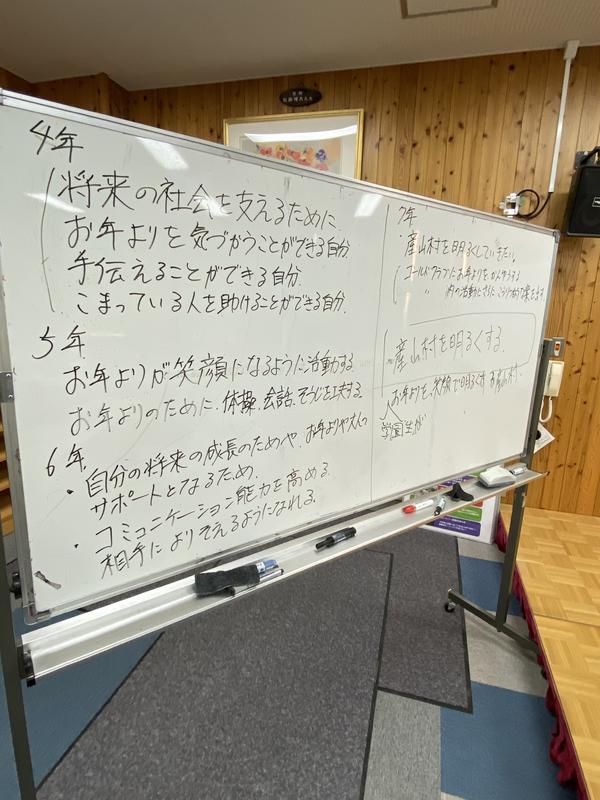 4年
将来の社会を支えるために
お年よりを気づかうことができる自分
手伝えることができる自分.
こまっている人を助けることができる自分.
5年
お年よりが笑顔になるように活動する.
お年よりのために、体操、会話、そうじを工夫する.
6年
・自分の将来の成長のためや、お年よりや大人の
サポートとなるため.
・コミュニケーション能力を高める.
相手によりそえるようになれる.
7年
産山村を明るくしていきたい。
ゴールドプランにお年よりを
内の活動に
産山村を明るくする.
お年よりを、笑顔で明るく
学園生が